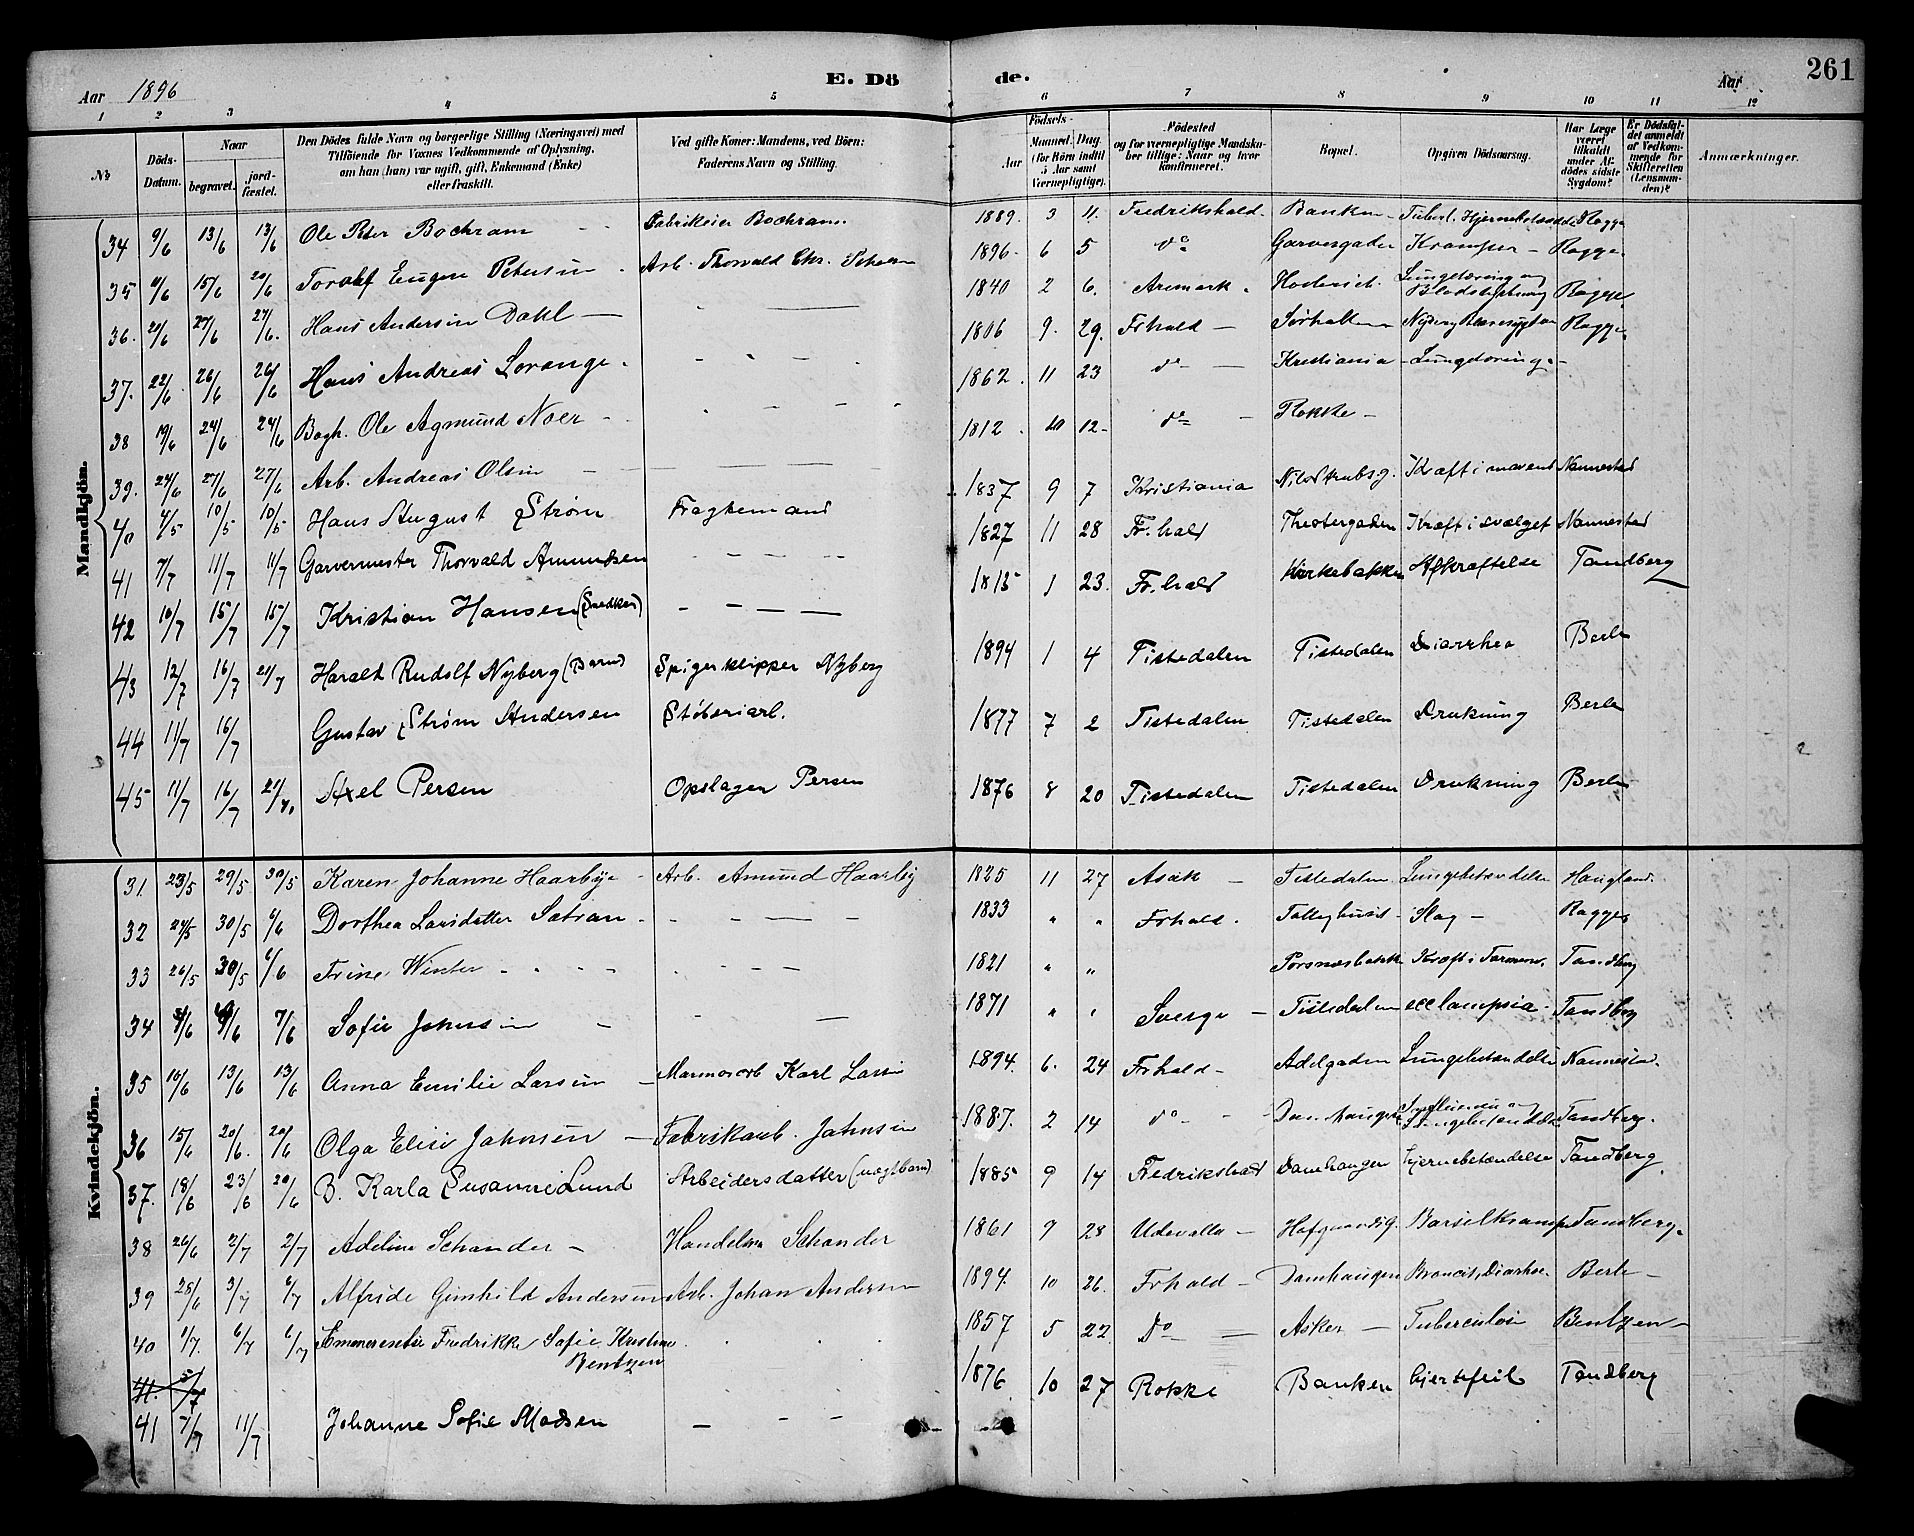 Aar 1896 E. Dö de. Aar 261
1 2 3 4 5 6 7 8 9 10 11 12
№ Döds-Datum. Naar begravet. jordfæstet. Den Dödes fulde Navn og borgerlige Stilling (Næringsvei) med Tilföiende for Voxnes Vedkommende af Oplysning, om han (hun) var ugift, gift, Enkemand (Enke) eller fraskilt. Ved gifte Koner: Mandens, ved Börn: Faderens Navn og Stilling. Aar Födsels-Maaned. Dag. (for Börn indtil 5 Aar samt Værnepligtige). Födested og for værnepligtige Mandskaber tillige: Naar og hvor konfirmeret. Bopæl. Opgiven Dödsaarsag. Har Læge været tilkaldt under Afdödes sidste Sygdom? Er Dödsfaldet anmeldt af Vedkommende for Skifteretten (Lensmanden)? Anmærkninger.
Mandkjön.
34 9/6 13/6 13/6 Ole Peter Bochram Fabrikeier Bochram. 1889. 3 11. Fredrikshald. Banken Ragge
35 9/6 15/6 20/6 Toralf Eugen Petersen Arb. Thorvald Chr. 1896. 6 5 do Garvergaden Kramper Ragge.
36. 20/6 27/6 27/6. Hans Andersen Dahl 1840 2 6. Aremark Lungetæring og Blodstyrtning Ragge
37. 22/6 26/6 26/6 Hans Andreas Lorange. 1806 9. 29. Frhald Sørhalten Ragge
38 19/6 24/6 24/6 Bogh. Ole Agmund Noer 1862. 11 23 do Kristiania Lungetæring.
39. 24/6 27/6 27/6 Arb. Andreas Olsen 1812. 10 12 do Rokke
40 4/5 10/5 10/5 Hans August Strøm Fragtemand 1837 9 7 Kristiania Kræft i maven Nannestad
41 7/7 11/7 11/7 Garvermester Thorvald Amundsen 1827 11 28 Fr.hald Theatergaden Kræft i svælget Nannestad
42 10/7 15/7 15/7 Kristian Hansen (Snedker) 1815 1 23. Fr.hald Kirkebakken Afkræftelse Tandberg
43 12/7 16/7 21/7 Harald Rudolf Nyberg (Barn) Spigerklipper Nyberg 1894 1 4 Tistedalen Tistedalen Diarrhea Berle
44 11/7 16/7 Gustav Strøm Andersen Støberiarb. 1877 7 2 Tistedalen Tistedalen Drukning Berle
45 11/7 16/7 Axel Persen Opslager Persen 1876 8 20 Tistedalen Tistedalen Drukning Berle
Kvindekjön.
31. 23/5 29/5 30/5 Karen Johanne Haarbye Arb. Amund Haarby 1825 11 27 Asak Tistedalen Lungebetændelse Haugland.
32 27/5 30/5 6/6 Dorthea Larsdatter Sætran 1833 " " Frhald. Fattighuset Slag Ragge
33 26/5 30/5 6/6 Trine Winter 1821 " " Porsnæsbakk Kræft i Tarmene. Tandberg
34 6/6 7/6 Sofie Johnsen 1871 " " Sverge Tistedalen ecclampsia Tandberg
35 10/6 13/6 13/6 Anna Emilie Larsen Marmorarb Karl Larsen 1894. 6. 24 Frhald Adelgaden Lungebetændelse Nannestad.
36 15/6 20/6. 20/6 Olga Elise Johnsen Fabrikarb. Johnsen 1887. 2 14 do Damhaugen Lungebetændelse Tandberg.
37. 18/6 23/6 20/6 B. Karla Susanne Lund Arbeidersdatter (uægtbarn) 1885 9 14 Fredrikshald Damhaugen hjernebetændelse Tandberg.
38 26/6 2/7 2/7 Adeline Schander Handelsm Schander 1861 9 28 Udevalla Hafgaardig. Barselkrampe Tandberg.
39 28/6 3/7 6/7 Alfride Gunhild Andersen Arb. Johan Andersen 1894. 10 26. Frhald Damhaugen Broncit, Diarhoe. Berle
40 1/7. 6/7 6/7 Emmerentse Fredrikke Sofie Kristine Bentzen 1857 5 22 Do Asker Tuberculose Bentzen
41. 5/7
41 7/7 11/7 Johanne Sofie Madsen 1876 10 27 Rokke Banken hjertefeil Tandberg